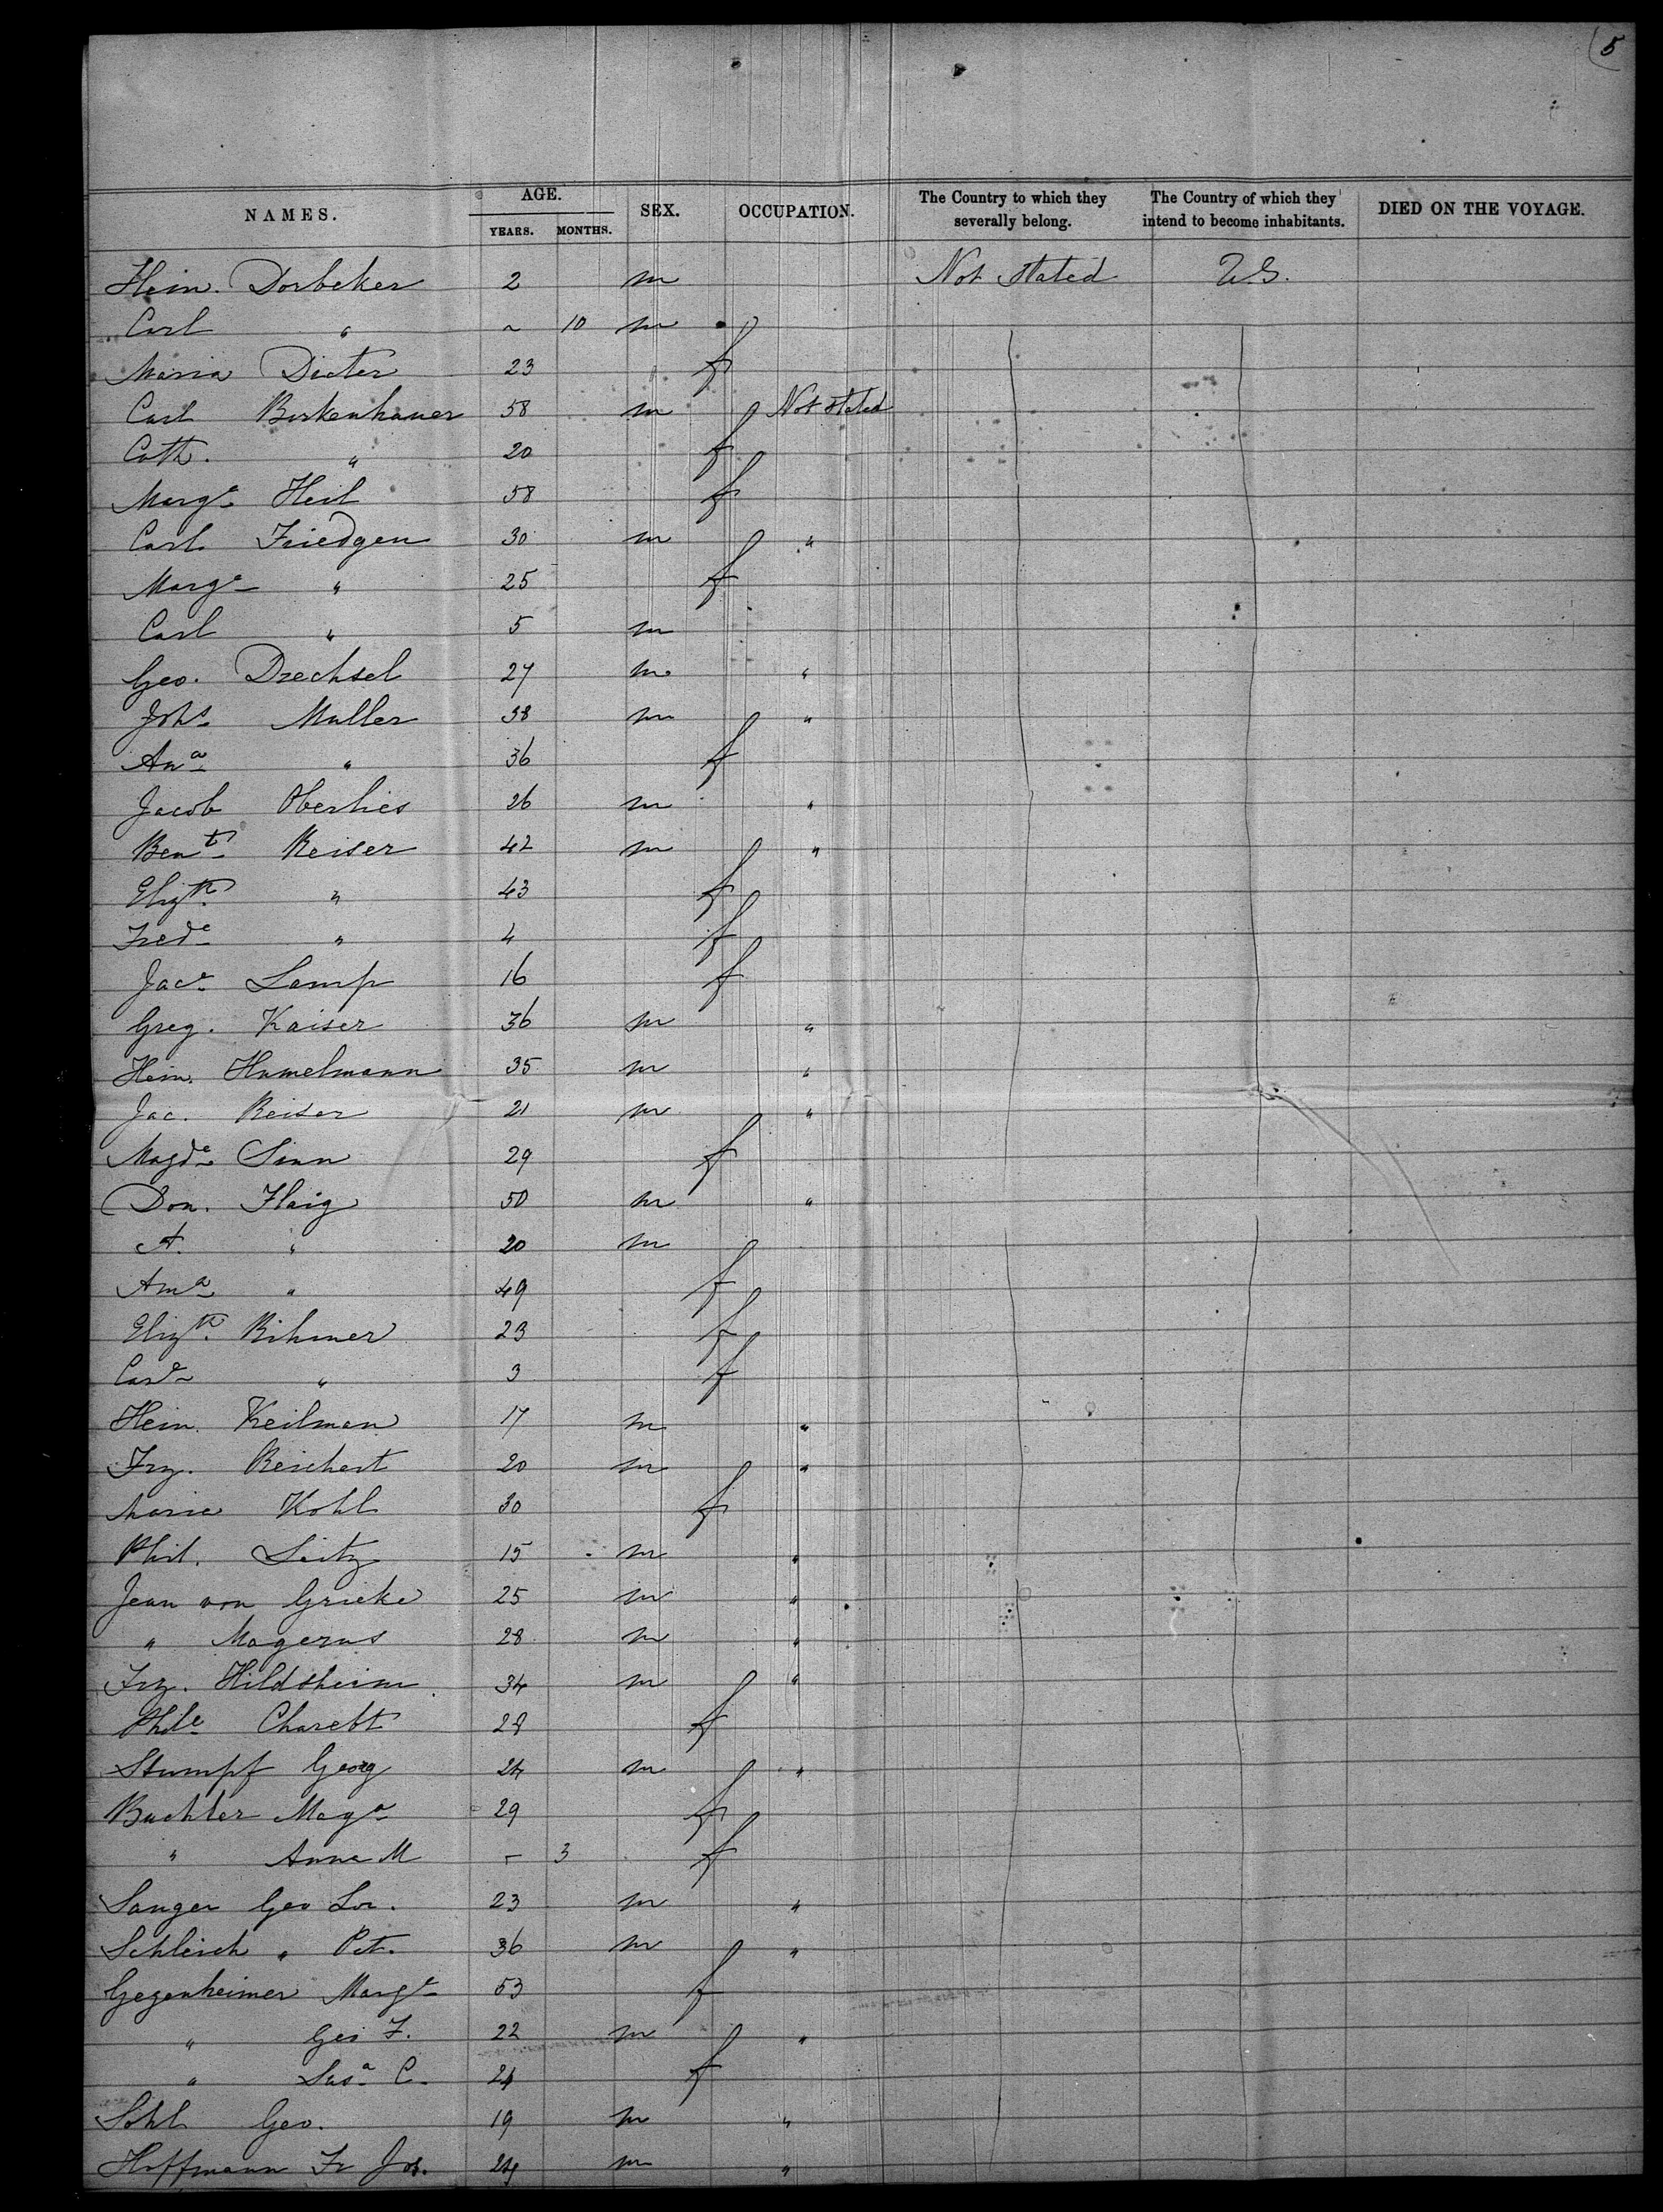 5
NAMES. AGE. YEARS. MONTHS. SEX. OCCUPATION. The Country to which they severally belong. The Country of which they intend to become inhabitants. DIED ON THE VOYAGE.
Hein. Dorbeker 2 m Not Stated U.S.
Carl " ~ 10 m
Maria Dieter 23 f
Carl Birkenhauer 58 m Not stated
Cath. " 20 f
Marge Heil 58 f
Carl Friedgen 30 m "
Marge " 25 f
Carl " 5 m
Geo. Drechsel 27 m "
Johs Muller 38 m "
Ana " 36 f
Jacob Oberlies 26 m "
Bent Reiser 42 m "
Elizth " 43 f
Frede " 4 f
Jace Lamp 16 f
Greg. Kaiser 36 m "
Hein. Humelmann 35 m "
Jac. Reiser 21 m "
Magde Sinn 29 f
Don. Flaig 50 m "
A. " 20 m
Ama " 49 f
Elizth Bihmer 23 f
Care " 3 f
Hein. Keilman 17 m "
Frz. Reichert 20 m "
Maria Kohl 30 f
Phil. Seitz 15 m "
Jean von Grieke 25 m "
" Magerus 28 m "
Frz. Hildsheim 34 m "
Phile Charebt 28 f
Stumpf Georg 24 m "
Buchler Maga 29 f
" Anna M - 3 f
Sanger Geo Lor. 23 m "
Schleich " Pet. 36 m "
Gegenheimer Marge 53 f
" Geo F. 22 m "
" Susa C. 24 f
Sohl Geo. 19 m "
Hoffmann Fr Jos. 24 m "